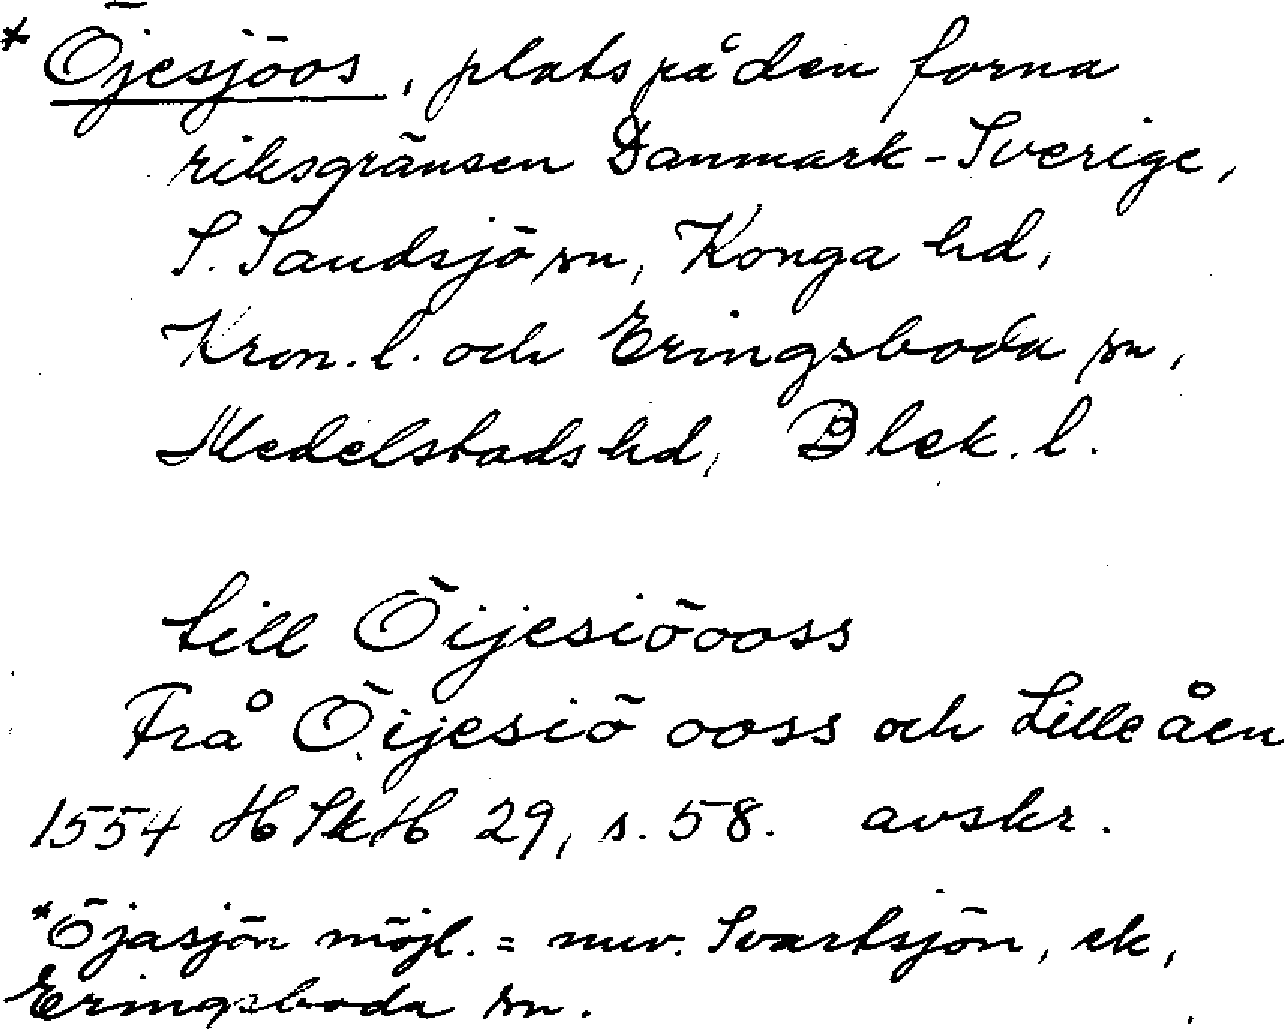 * Öjesjöos, plats på den forna
riksgränsen Danmark-Sverige,
S. Sandsjö sn, Konga hd,
Kron. l. och Eringsboda sn,
Medelstads hd, Blek. l.
till Öijesiöooss
Frå Öijesiö ooss och Lilleåen
1554 HSkH 29, s. 58. avskr.
*Öjasjön möjl. = nuv. Svartsjön, ek,
Eringsboda sn.